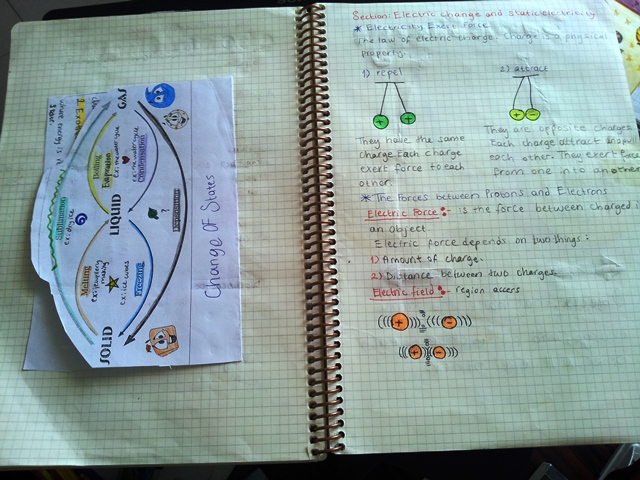 Change Of States
SOLID
LIQUID
GAS
Melting
ex: jewelery
making
Freezing
ex: ice cubes
Boiling
Evaporation
Condensation
Sublimation
ex: dry ice
Deposition
?
Section: Electric Change and static electricity
* Electricity Exert Force
The law of electric charge: Charge is a physical
property.
1) repel
+ +
They have the same
charge Each charge
exert force to each
other.
2) attract
+ -
They are opposite charges
Each charge attract
each other. They exert
from one into an other
* The Forces between Protons and Electrons
Electric Force:- is the force between Charged
an object
Electric force depends on two things:
1) Amount of charge.
2) Distance between two charges
Electric field:- region
+ -
+ -